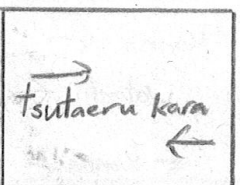 tsutaeru kara